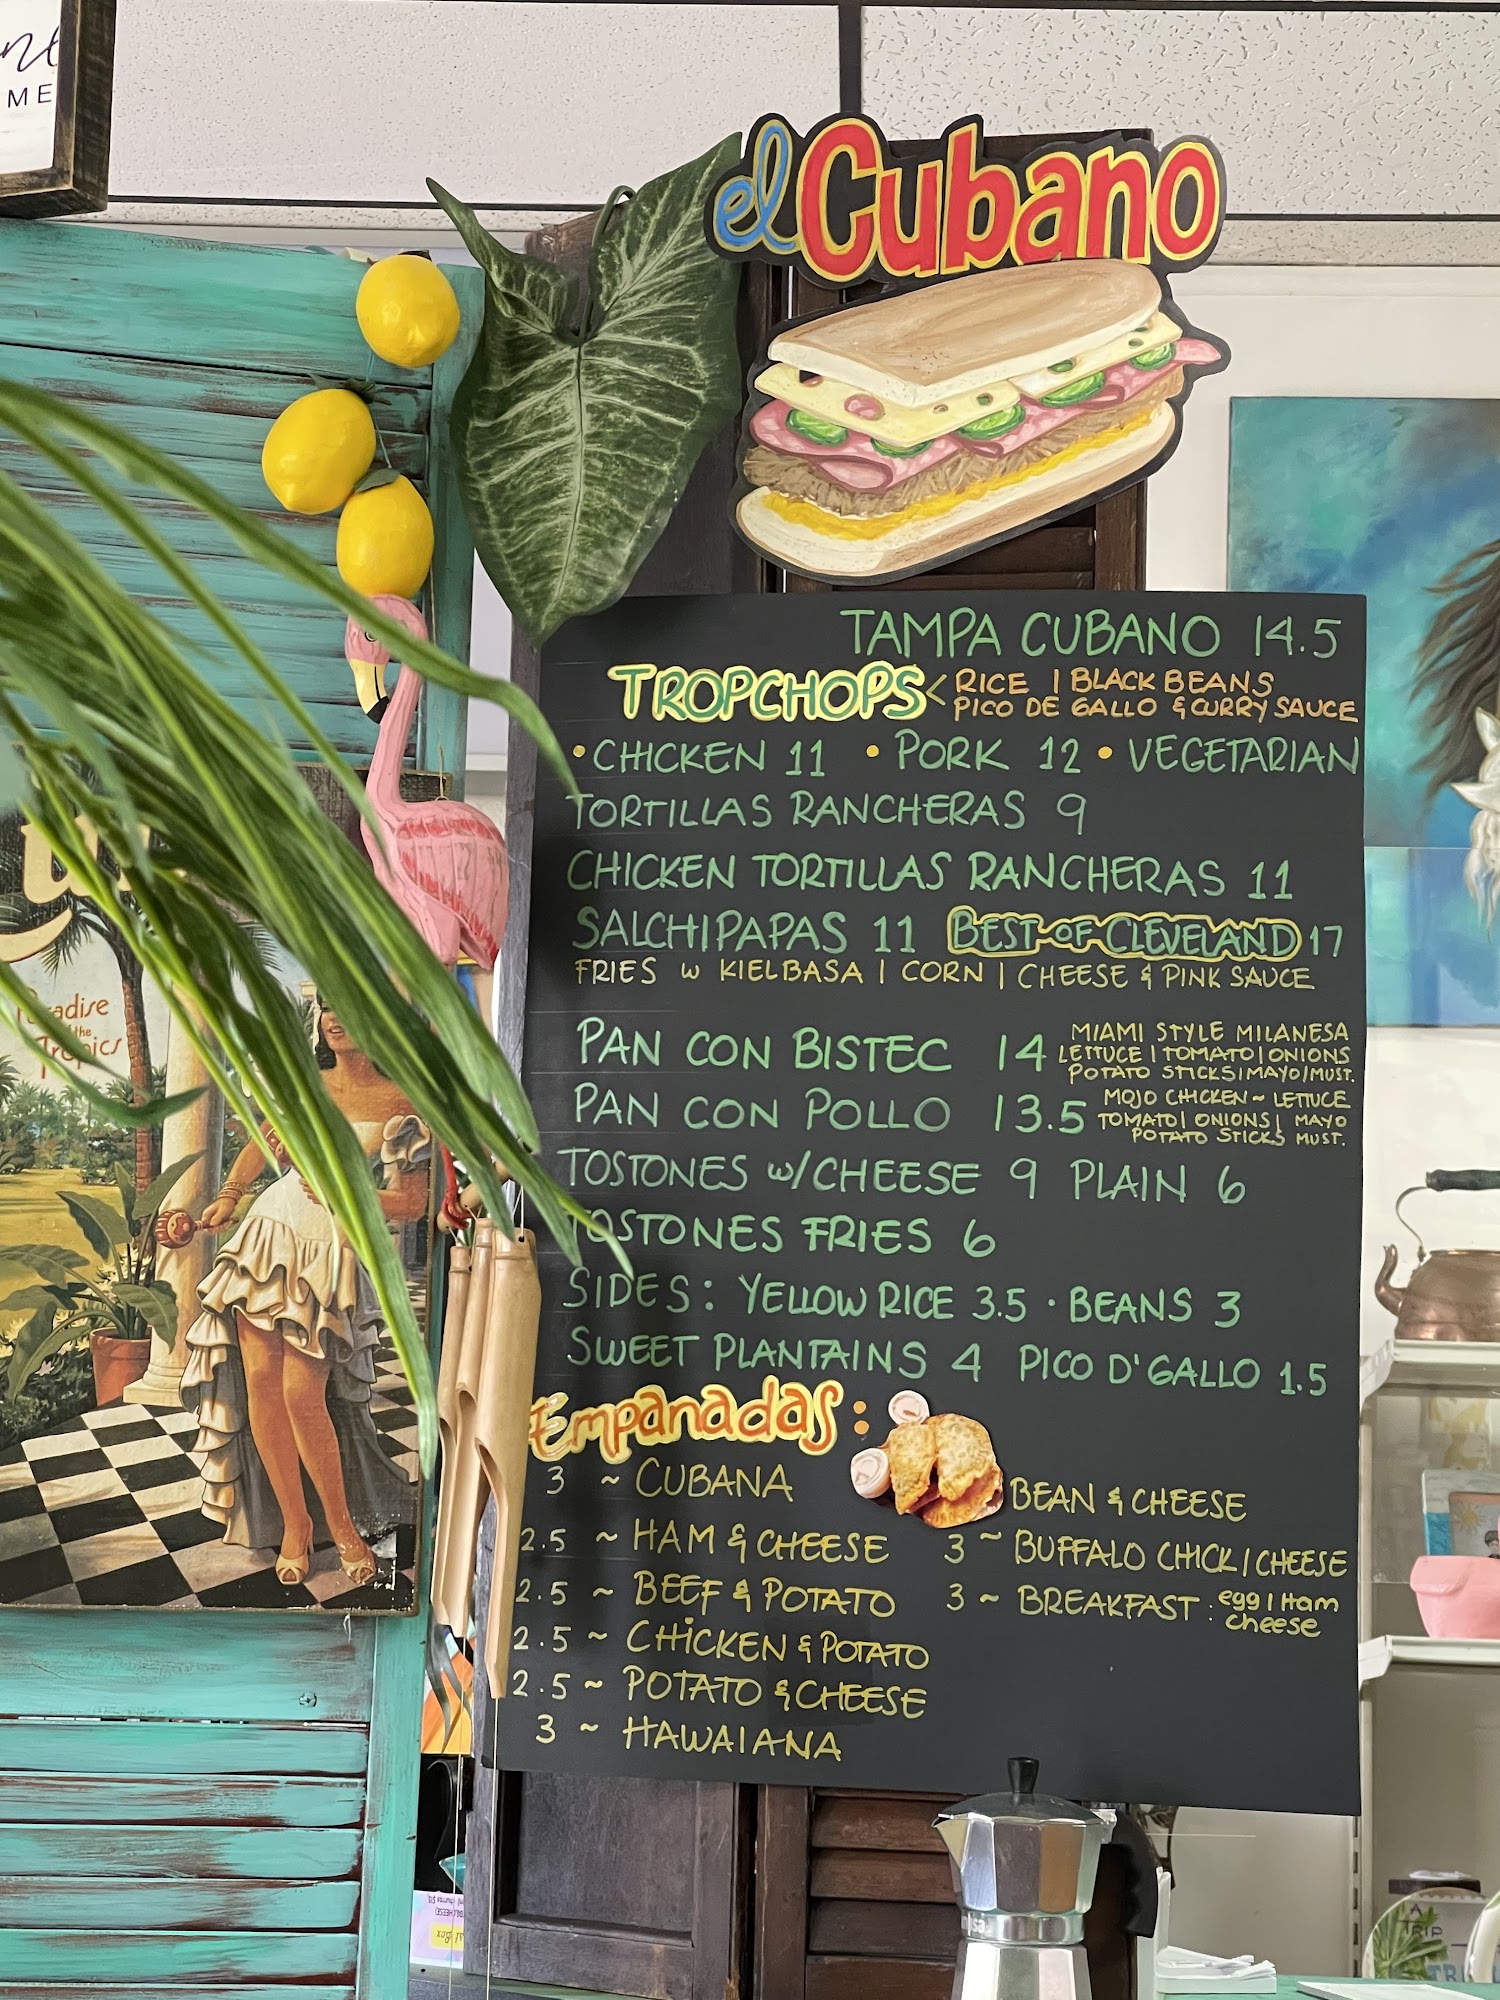 ME
el Cubano
TAMPA CUBANO 14.5
TROPCHOPS < RICE | BLACK BEANS
PICO DE GALLO & CURRY SAUCE
• CHICKEN 11 • PORK 12 • VEGETARIAN
TORTILLAS RANCHERAS 9
CHICKEN TORTILLAS RANCHERAS 11
SALCHIPAPAS 11 BEST OF CLEVELAND 17
FRIES W KIELBASA | CORN | CHEESE & PINK SAUCE
PAN CON BISTEC 14 MIAMI STYLE MILANESA
LETTUCE | TOMATO | ONIONS
POTATO STICKS | MAYO | MUST.
PAN CON POLLO 13.5 MOJO CHICKEN ~ LETTUCE
TOMATO | ONIONS | MAYO
POTATO STICKS MUST.
TOSTONES w/CHEESE 9 PLAIN 6
TOSTONES FRIES 6
SIDES: YELLOW RICE 3.5 · BEANS 3
SWEET PLANTAINS 4 PICO D'GALLO 1.5
Empanadas:
3 ~ CUBANA
2.5 ~ HAM & CHEESE
2.5 ~ BEEF & POTATO
2.5 ~ CHICKEN & POTATO
2.5 ~ POTATO & CHEESE
3 ~ HAWAIANA
BEAN & CHEESE
3 ~ BUFFALO CHICK | CHEESE
3 ~ BREAKFAST: egg | Ham
cheese
Paradise
of the
Tropics
A
TRIP